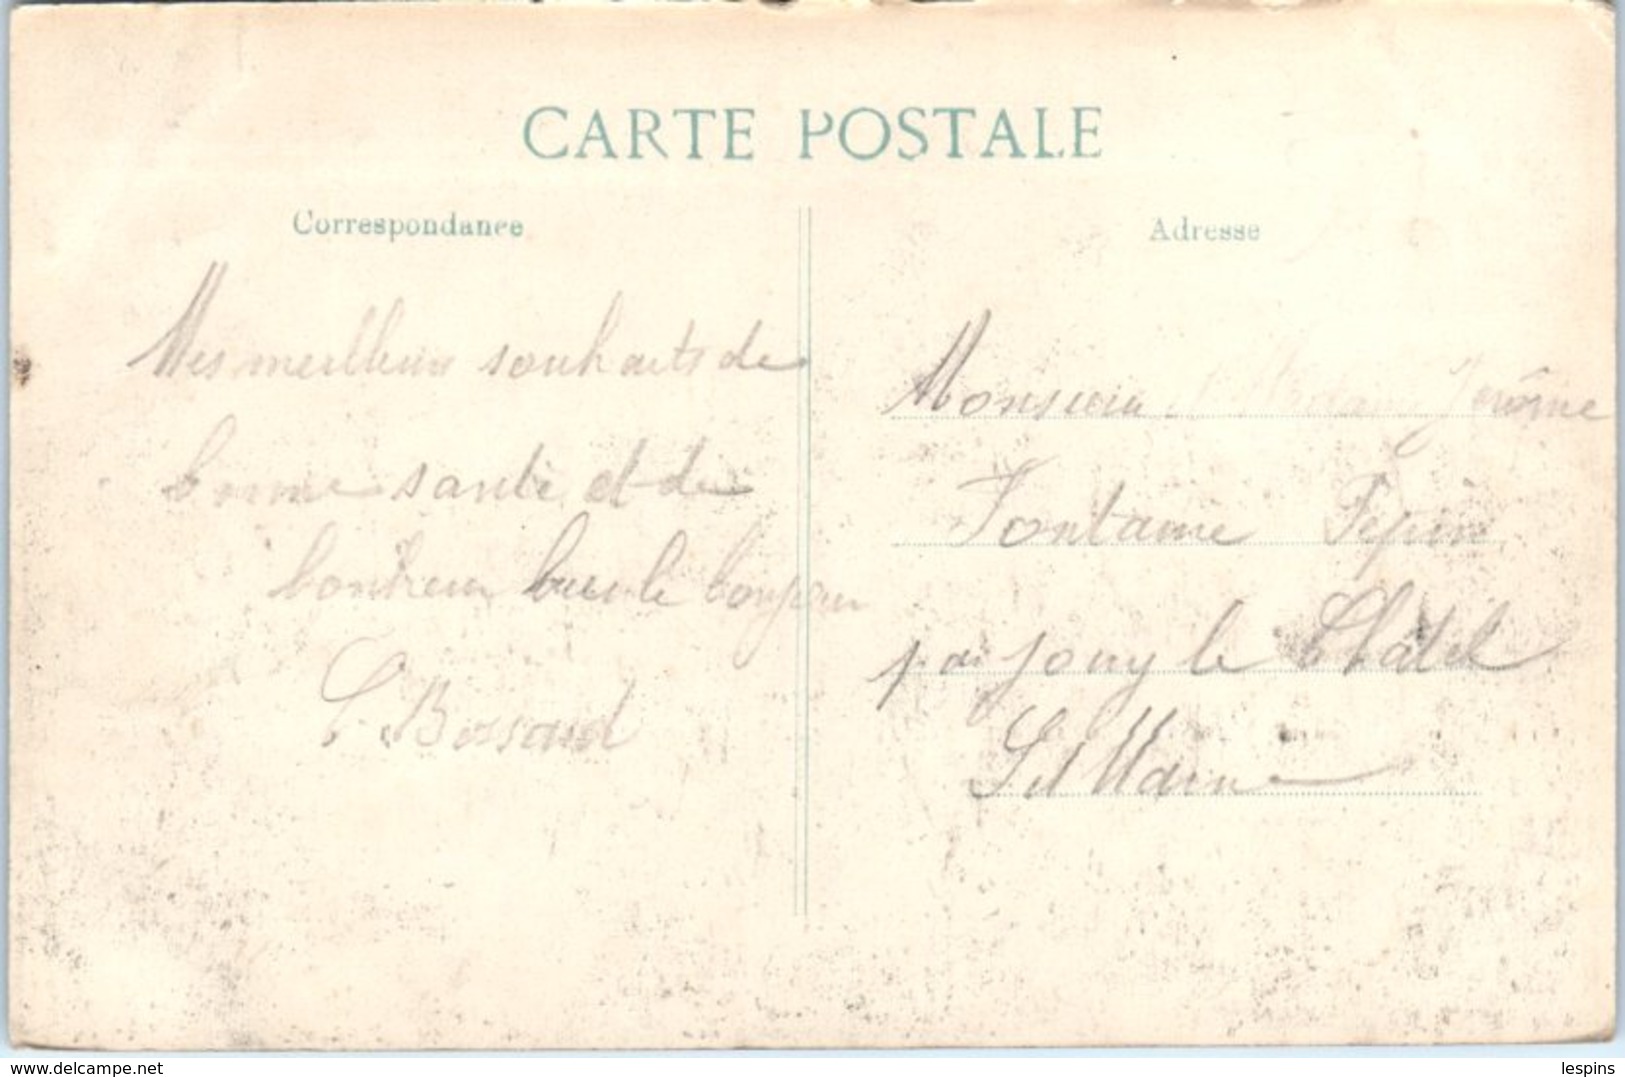 CARTE POSTALE
Correspondance
Mes meilleurs souhaits de
bonne santé et de
bonheur bien le bonjour
Bossard
Adresse
Monsieur Jérôme
Fontaine Pépin
par Jouy le Châtel
S et Marne
delcampe.net
lespins